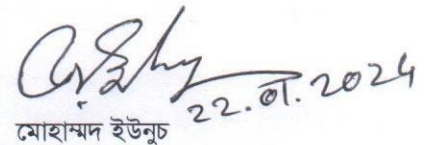 22.01.2024
মোহাম্মদ ইউনুচ